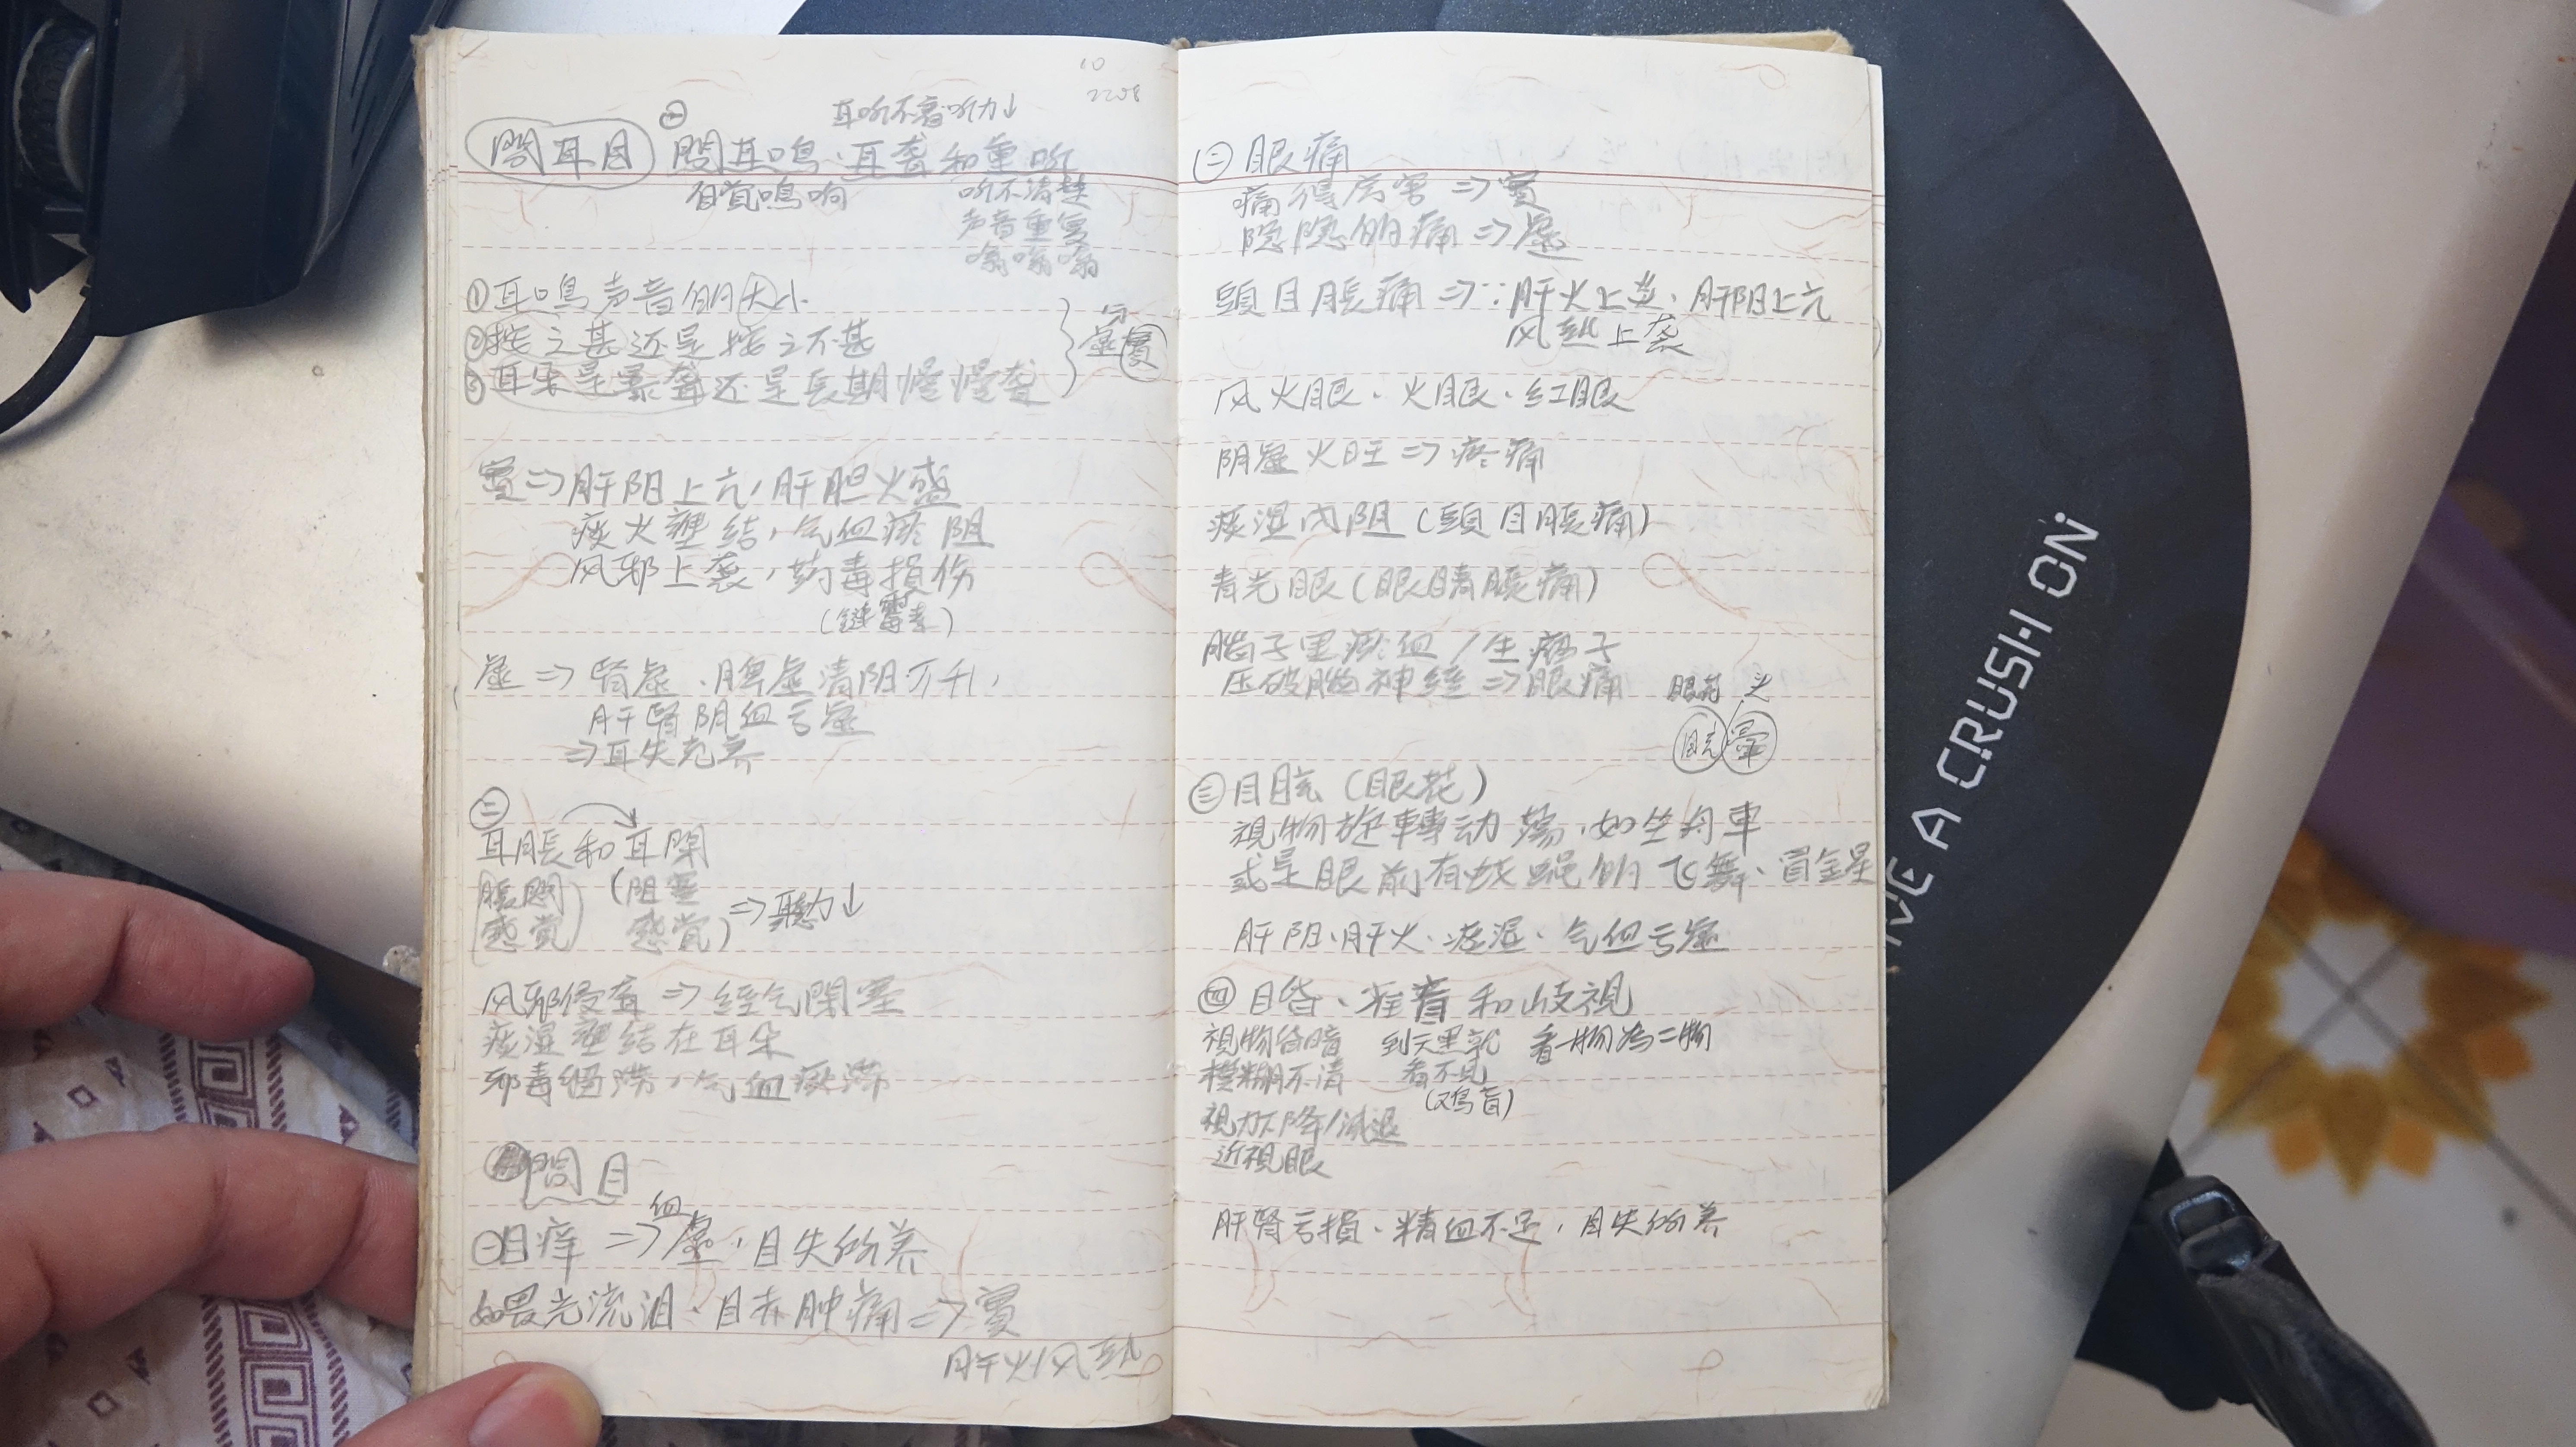 10
2208
耳听不意听力↓
問耳目 ㊀ 問耳鳴、耳聋和重听
自覚鳴响
听不清楚
声音重复
嗡嗡嗡
①耳鳴声音的大小
②按之甚还是按之不甚
③耳朵是暴聋还是長期慢慢聋
分
虚實
實⇒肝阳上亢，肝胆火盛
痰火壅结，气血瘀阻
风邪上袭，药毒損伤
(鏈霉素)
虚⇒腎虚、脾虚清阳不升、
肝腎阴血亏虚
⇒耳失充养
㊁
耳脹和耳閉
(脹悶感覚) (阻塞感覚)⇒聴力↓
风邪侵聋⇒経气閉塞
痰湿壅结在耳朵
邪毒留滞，气血瘀滞
問目
㊀目痒⇒血虚，目失所养
如畏光流泪、目赤肿痛⇒實
肝火/风熱
㊁眼痛
痛得厉害⇒實
隐隐的痛⇒虚
頭目脹痛⇒∵肝火上炎、肝阳上亢
风熱上袭
风火眼、火眼、红眼
阴虚火旺⇒疼痛
痰湿内阻(頭目脹痛)
青光眼(眼睛脹痛)
脑子里瘀血/生瘤子
压破脑神経⇒眼痛
眼花 头
眩 暈
㊂目眩(眼花)
視物旋轉动荡、如坐舟車
或是眼前有蚊蝇的飞舞、冒金星
肝阳、肝火、痰湿、气血亏虚
㊃目昏、雀盲和岐視
視物昏暗 到天黑就 看一物為二物
模糊不清 看不見
(又鳥盲)
視力下降/減退
近視眼
肝腎亏損、精血不足，目失所养
A CRUSH ON